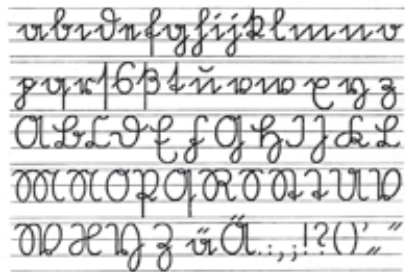 a b c d e f g h i j k l m n o
p q r ſ s ß t u v w x y z
A B C D E F G H I J K L
M N O P Q R S St T U V
W X Y Z ü Ä . : , ; ! ? ( ) ' „ “